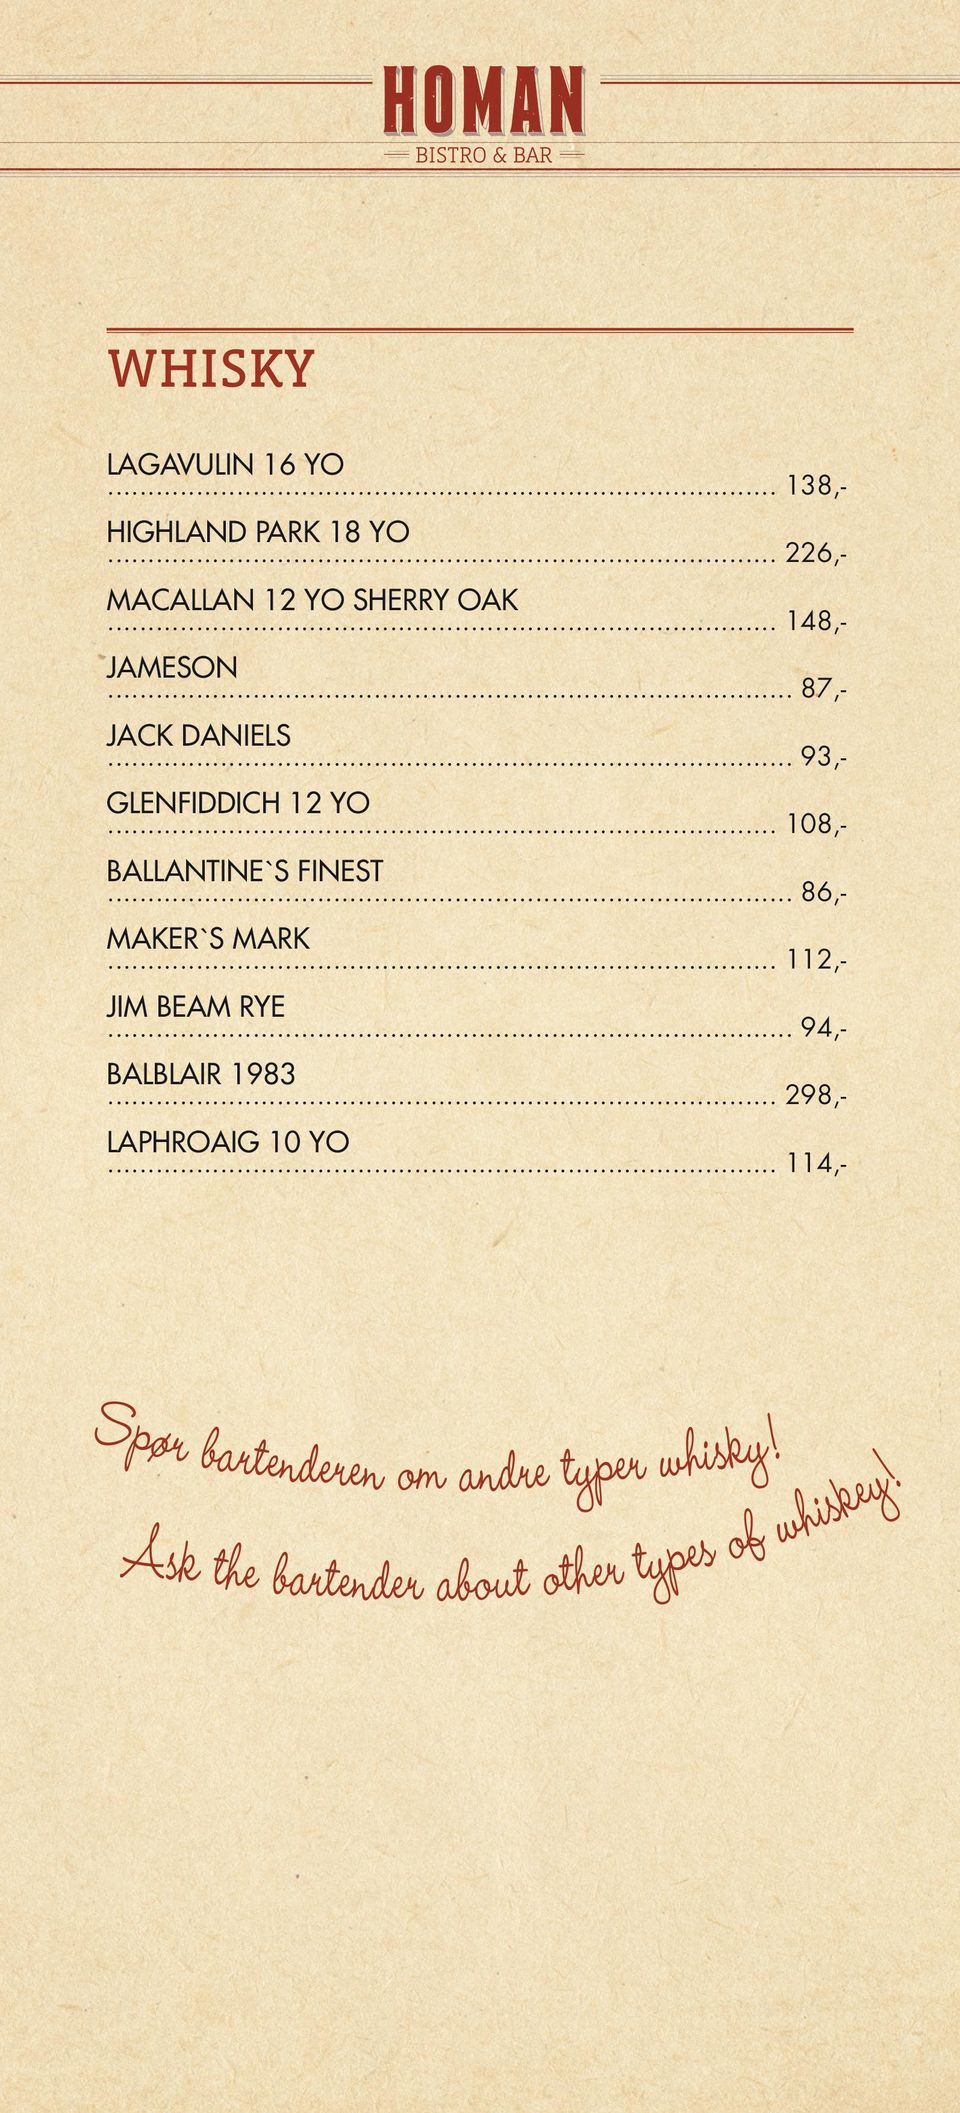 HOMAN
BISTRO & BAR
WHISKY
LAGAVULIN 16 YO
.................................................................................... 138,-
HIGHLAND PARK 18 YO
.................................................................................... 226,-
MACALLAN 12 YO SHERRY OAK
.................................................................................... 148,-
JAMESON
...................................................................................... 87,-
JACK DANIELS
...................................................................................... 93,-
GLENFIDDICH 12 YO
.................................................................................... 108,-
BALLANTINE`S FINEST
...................................................................................... 86,-
MAKER`S MARK
.................................................................................... 112,-
JIM BEAM RYE
...................................................................................... 94,-
BALBLAIR 1983
.................................................................................... 298,-
LAPHROAIG 10 YO
.................................................................................... 114,-
Spør bartenderen om andre typer whisky!
Ask the bartender about other types of whiskey!